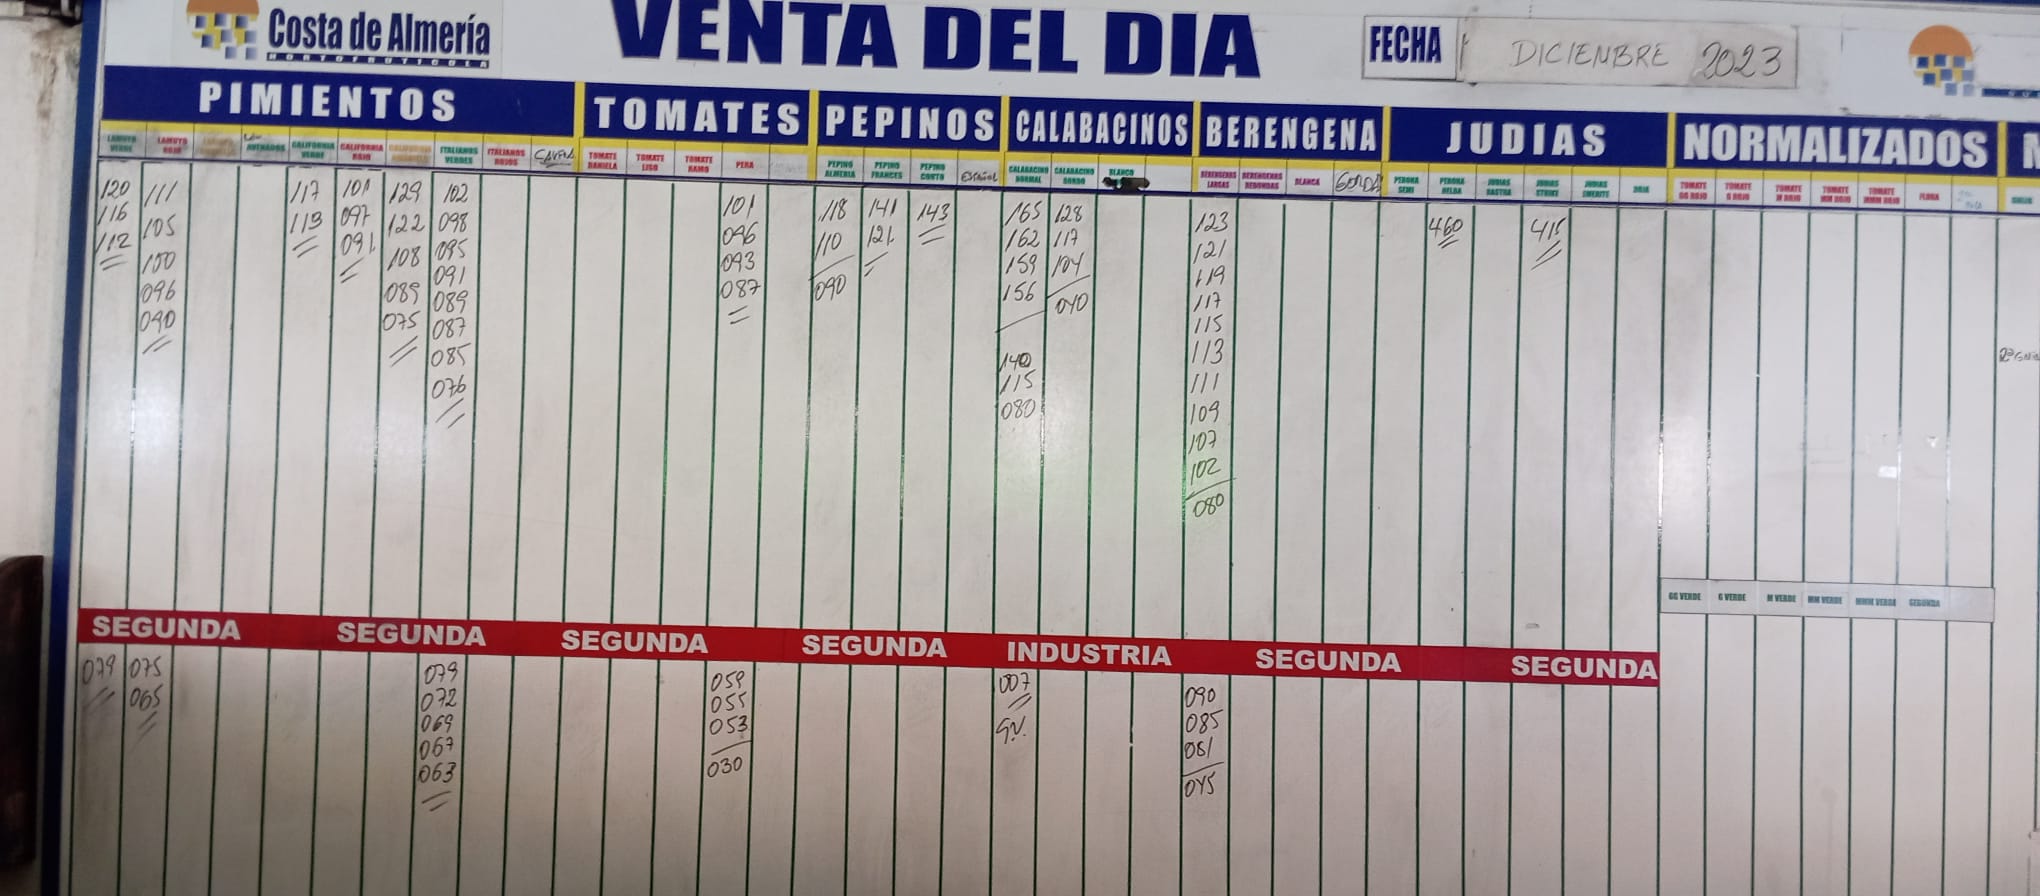 Costa de Almería
HORTOFRUTICOLA
VENTA DEL DIA
FECHA
DICIENBRE 2023
PIMIENTOS
TOMATES
PEPINOS
CALABACINOS
BERENGENA
JUDIAS
NORMALIZADOS
LAMUYO VERDE
LAMUYO ROJO
CALIFORNIA VERDE
CALIFORNIA ROJO
CALIFORNIA AMARILLO
ITALIANOS VERDES
ITALIANOS ROJOS
TOMATE DANIELA
TOMATE LISO
TOMATE RAMO
PERA
PEPINO ALMERIA
PEPINO FRANCES
PEPINO CORTO
ESPAÑOL
CALABACINO NORMAL
CALABACINO GORDO
BLANCO
BERENGENAS LARGAS
BERENGENAS REDONDAS
BLANCA
GORDA
PERONA SEMI
PERONA HELDA
JUDIAS STRIKE
JUDIAS EMERITE
TOMATE GG ROJO
TOMATE G ROJO
TOMATE M ROJO
TOMATE MM ROJO
TOMATE MMM ROJO
FLORA
120
116
112
111
105
100
096
090
117
113
101
097
091
129
122
108
089
075
102
098
095
091
089
087
085
076
101
096
093
087
118
110
090
141
121
143
165
162
159
156
140
115
080
128
117
104
040
123
121
119
117
115
113
111
109
107
102
080
460
415
GG VERDE
G VERDE
M VERDE
MM VERDE
MMM VERDE
SEGUNDA
SEGUNDA
SEGUNDA
SEGUNDA
SEGUNDA
INDUSTRIA
SEGUNDA
SEGUNDA
079
075
065
079
072
069
067
063
059
055
053
030
007
090
085
081
045